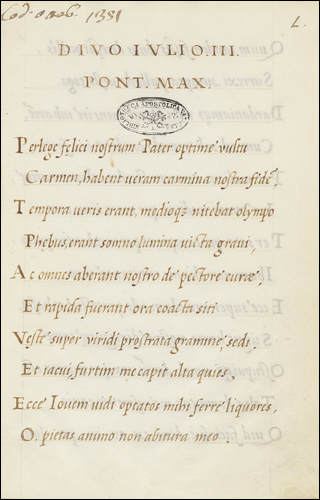 Cod. ottob. 1351 1.
DIVO IVLIO.III.
PONT. MAX.
Perlege felici nostrum Pater optime vultu
Carmen, habent ueram carmina nostra fidē
Tempora ueris erant, medioqꝫ nitebat olympo
Phebus, erant somno lumina uicta graui,
Ac omnes aberant nostro de pectore curæ,
Et rapida fuerant ora coacta siti
Veste super viridi prostrata gramine, sedi
Et iacui, furtim me capit alta quies.
Ecce Iouem uidi optatos mihi ferre liquores,
O pietas animo non abitura meo.